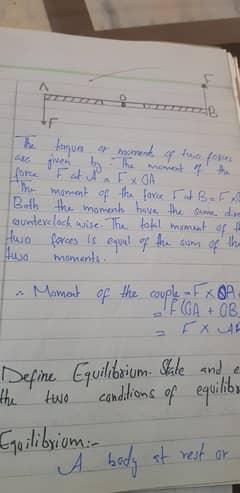 A
O
F
F
B
The torque or moments of two forces
are given by :- The moment of the
force F at A = F × OA
The moment of the force F at B = F ×
Both the moments have the same
counterclock wise. The total moment of
two forces is equal of the sum of the
two moments.
∴ Moment of the couple = F × OA
= F(OA + OB
= F ×
Define Equilibrium. State and
the two conditions of
Equilibrium:-
A body at rest or